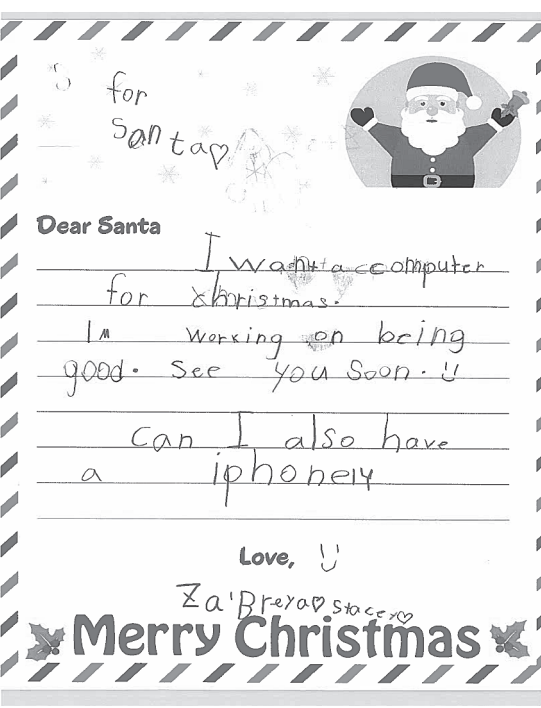 for
Santa♡
Dear Santa
I want a computer
for christmas.
Im working on being
good. See you Soon.
Can I also have
a iphone14
Love,
Za'Breya♡ Stacey♡
Merry Christmas